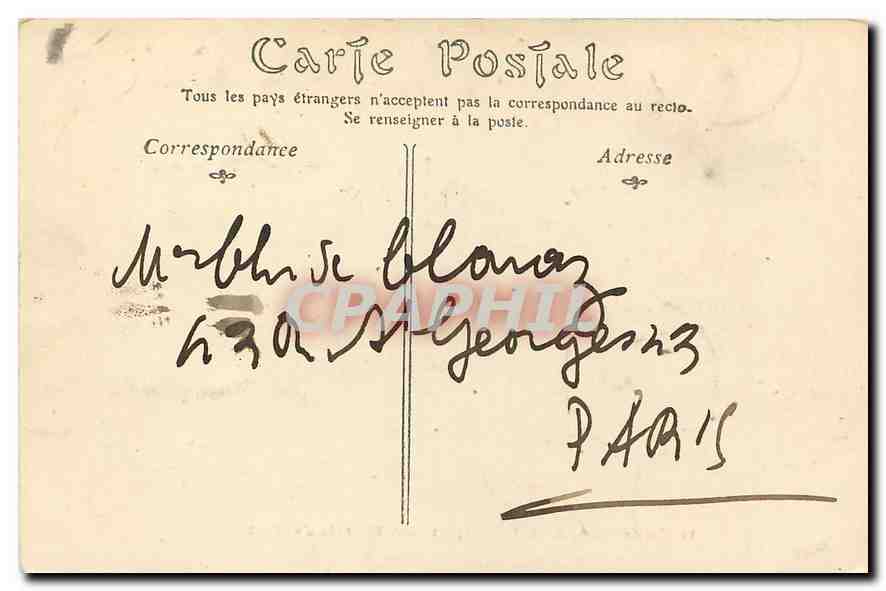 Carte Postale
Tous les pays étrangers n'acceptent pas la correspondance au recto.
Se renseigner à la poste.
Correspondance
Adresse
de
CPAPHIL
St Georges 23
PARIS